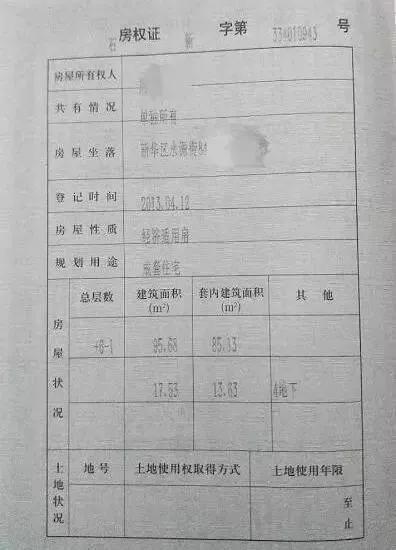 石 房权证 新 字第 334010943 号
房屋所有权人
共有情况 单独所有
房屋坐落 新华区水源街84
登记时间 2013.04.12
房屋性质 经济适用房
规划用途 成套住宅
房屋状况 总层数 建筑面积(m²) 套内建筑面积(m²) 其他
+6-1 95.68 85.13
17.53 13.63 4地下
土地状况 地号 土地使用权取得方式 土地使用年限
至
止